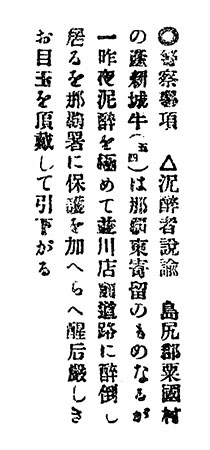 ◎警察事項　△泥醉者說諭　島尻郡粟國村
の產新城牛(五四)は那覇東寄留のものなるが
一昨夜泥醉を極めて並川店前道路に醉倒し
居るを那覇署に保護を加へられ醒后嚴しき
お目玉を頂戴して引下がる